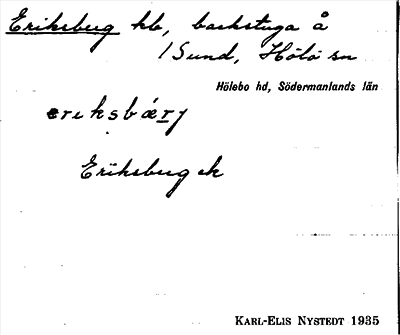 Eriksberg kb, backstuga å
/Sund, Hölö sn
Hölebo hd, Södermanlands län
eriksbærj
Eriksberg ek
KARL-ELIS NYSTEDT 1935